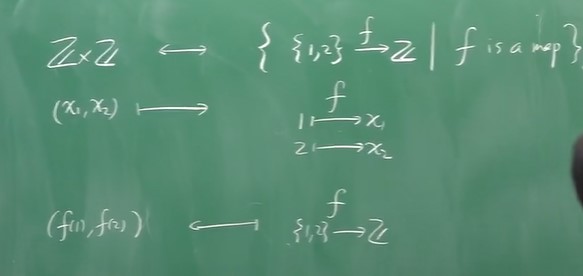 ℤ×ℤ ↔ { {1,2} →^f ℤ | f is a map }
(x₁, x₂) ↦ f
1 ↦ x₁
2 ↦ x₂
f
(f(1), f(2)) ↤ {1,2} → ℤ